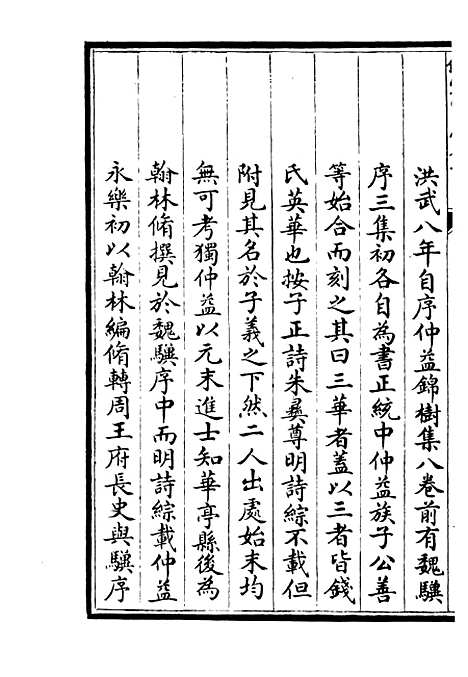 洪武八年自序仲益錦樹集八卷前有魏驥
序三集初各自為書正統中仲益族子公善
等始合而刻之其曰三華者蓋以三者皆錢
氏英華也按子正詩朱彝尊明詩綜不載但
附見其名於子義之下然二人出處始末均
無可考獨仲益以元末進士知華亭縣後為
翰林脩撰見於魏驥序中而明詩綜載仲益
永樂初以翰林編脩轉周王府長史與驥序